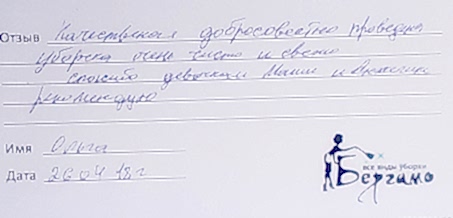 Отзыв Качественная добросовестно проведена
уборка очень чисто и свежо
спасибо девочкам Маши и
рекомендую
Имя Ольга
Дата 26 04 18 г
все виды уборки
Бергамо